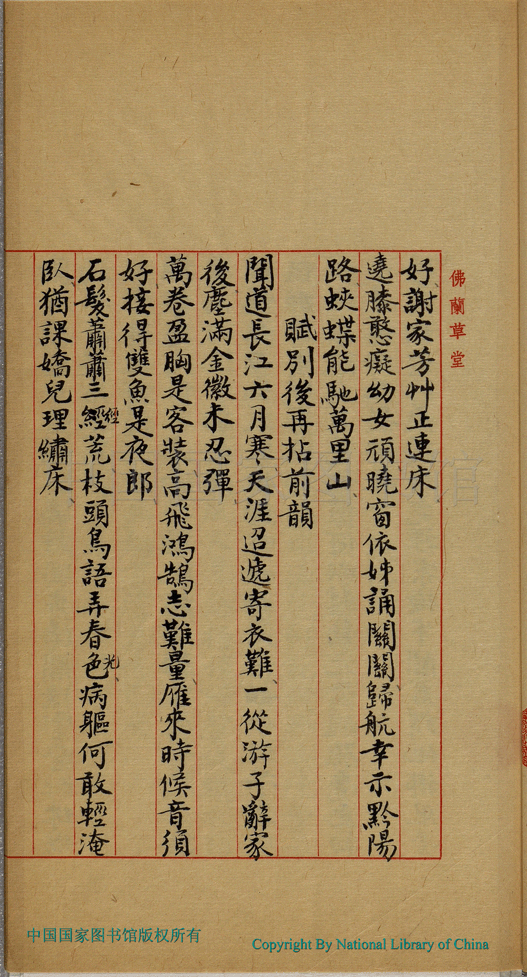 佛蘭草堂
好謝家芳艸正連床
遶膝憨癡幼女頑曉窗依姊誦關關歸航幸示黔陽
路蛺蝶能馳萬里山
賦別後再拈前韻
聞道長江六月寒天涯迢遞寄衣難一從游子辭家
後塵滿金徽未忍彈
萬卷盈胸是客裝高飛鴻鵠志難量雁來時候音須
好接得雙魚是夜郎
石髮蕭蕭三經徑荒枝頭鳥語弄春色光病軀何敢輕淹
臥猶課嬌兒理繡床
中国国家图书馆版权所有
Copyright By National Library of China